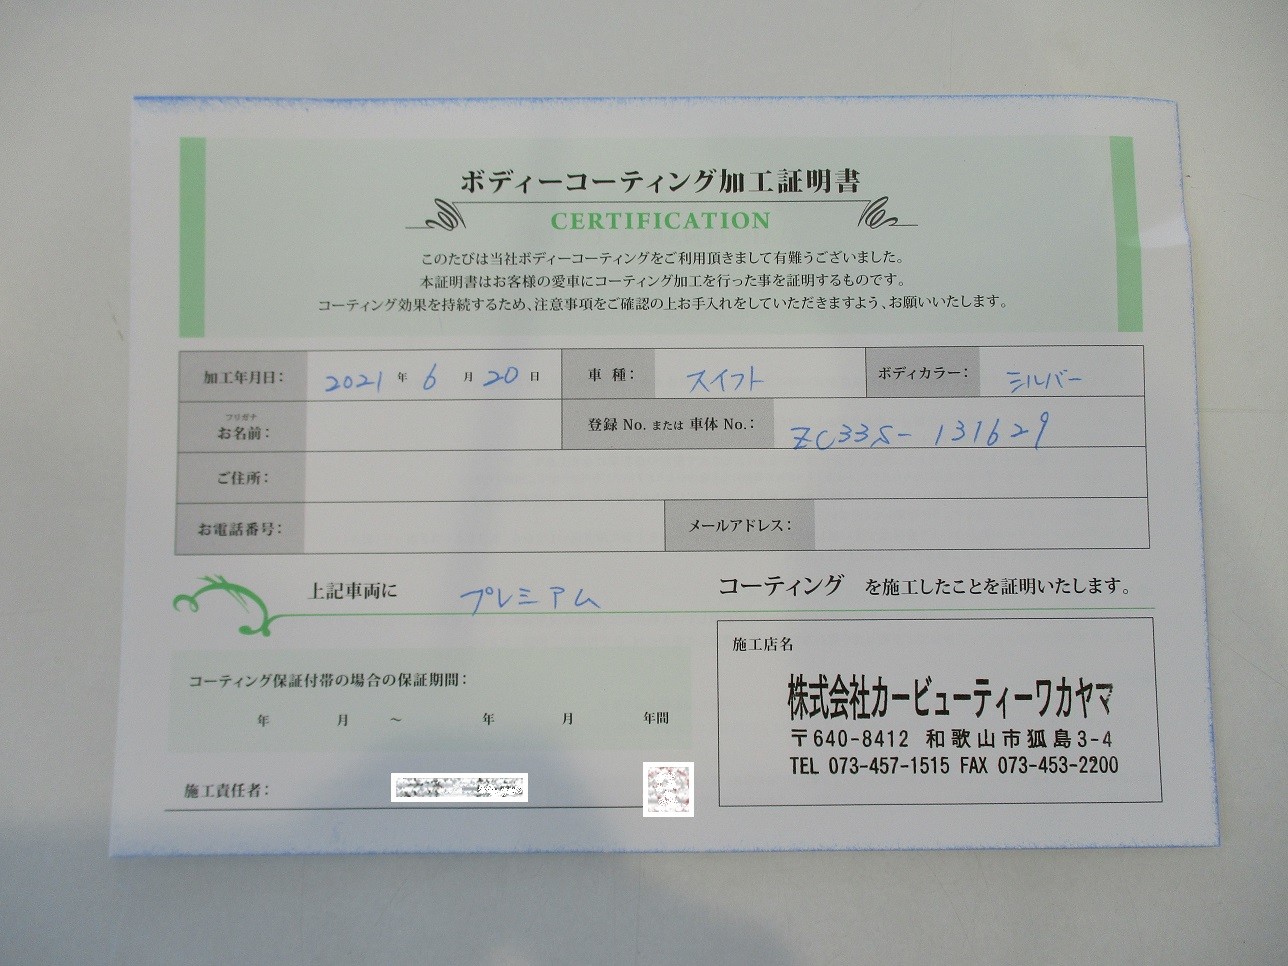 ボディーコーティング加工証明書
CERTIFICATION
このたびは当社ボディーコーティングをご利用頂きまして有難うございました。
本証明書はお客様の愛車にコーティング加工を行った事を証明するものです。
コーティング効果を持続するため、注意事項をご確認の上お手入れをしていただきますよう、お願いいたします。
加工年月日： 2021 年 6 月 20 日 車 種： スイフト ボディカラー： シルバー
フリガナ
お名前： 登録 No. または 車体 No.： ZC33S- 131629
ご住所：
お電話番号： メールアドレス：
上記車両に プレミアム コーティング を施工したことを証明いたします。
コーティング保証付帯の場合の保証期間：
年 月 ～ 年 月 年間
施工責任者：
施工店名
株式会社カービューティーワカヤマ
〒640-8412 和歌山市狐島3-4
TEL 073-457-1515 FAX 073-453-2200